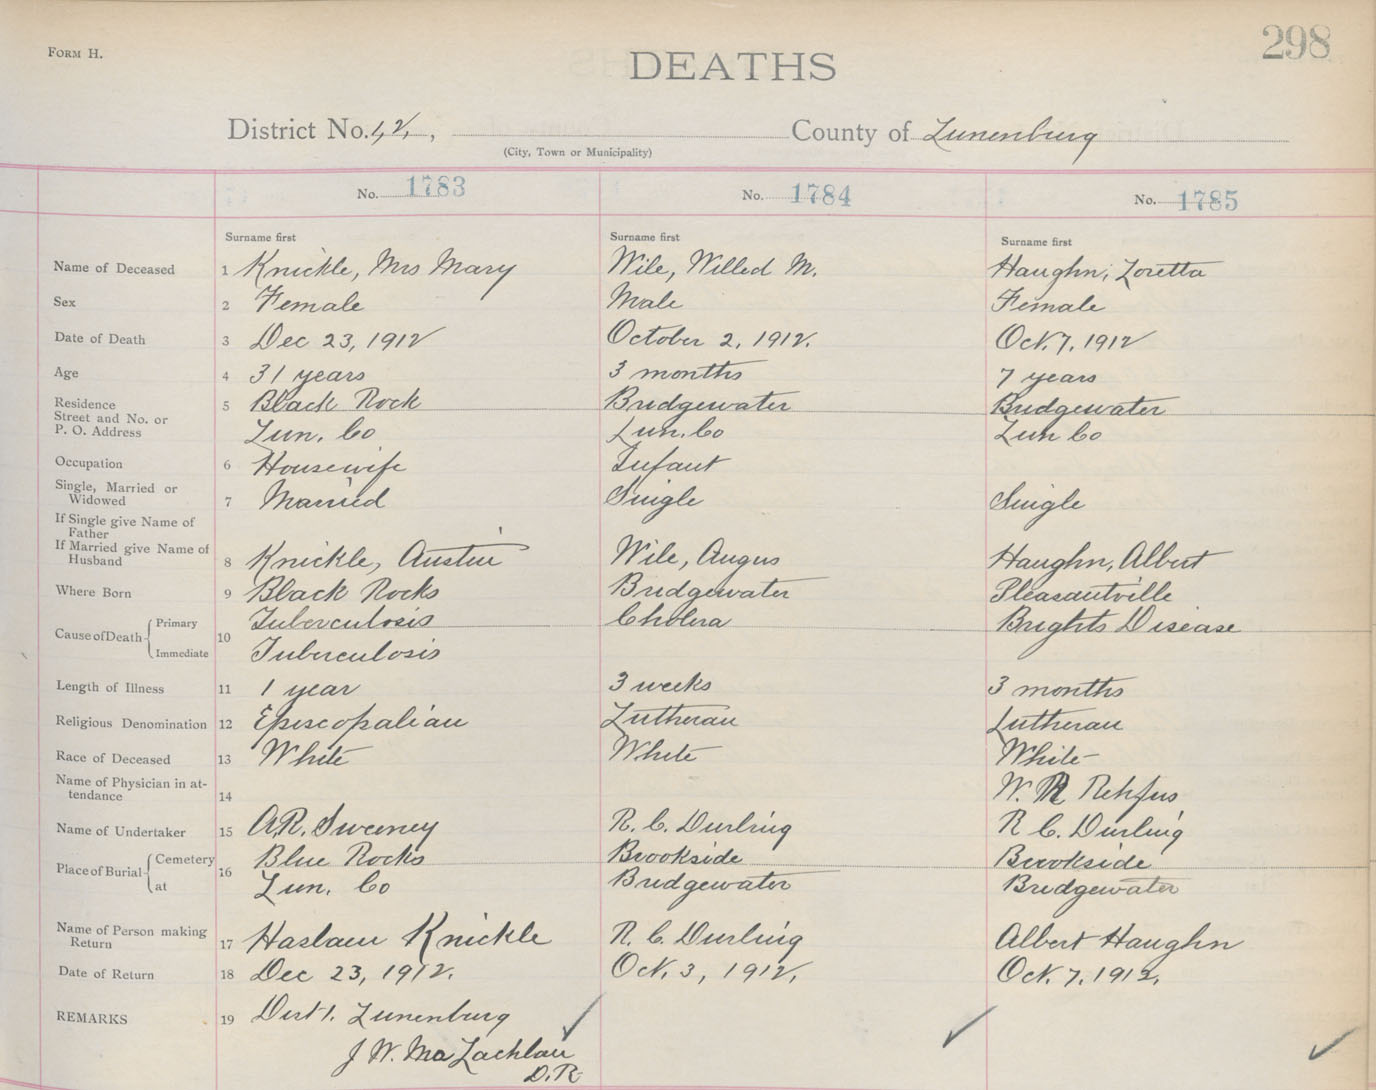 FORM H.
DEATHS
298
District No. 1,2, , County of Lunenburg
(City, Town or Municipality)
No. 1783 No. 1784 No. 1785
Surname first Surname first Surname first
Name of Deceased 1 Knickle, Mrs Mary Wile, Willed M. Haughn, Loretta
Sex 2 Female Male Female
Date of Death 3 Dec 23, 1912 October 2, 1912. Oct. 7, 1912
Age 4 31 years 3 months 7 years
Residence
Street and No. or 5 Black Rock Bridgewater Bridgewater
P. O. Address Lun. Co Lun. Co Lun Co
Occupation 6 Housewife Infant
Single, Married or
Widowed 7 Married Single Single
If Single give Name of
Father
If Married give Name of
Husband 8 Knickle, Austin Wile, Angus Haughn, Albert
Where Born 9 Black Rocks Bridgewater Pleasantville
Cause of Death Primary 10 Tuberculosis Cholera Brights Disease
Immediate Tuberculosis
Length of Illness 11 1 year 3 weeks 3 months
Religious Denomination 12 Episcopalian Lutheran Lutheran
Race of Deceased 13 White White White
Name of Physician in at-
tendance 14 W. R Rehfus
Name of Undertaker 15 A.R. Sweeney R. C. Durling R C. Durling
Place of Burial Cemetery 16 Blue Rocks Brookside Brookside
at Lun. Co Bridgewater Bridgewater
Name of Person making
Return 17 Haslam Knickle R. C. Durling Albert Haughn
Date of Return 18 Dec 23, 1912. Oct. 3, 1912, Oct. 7, 1912.
REMARKS 19 Dist 1. Lunenburg
J W. MacLachlan
D.R